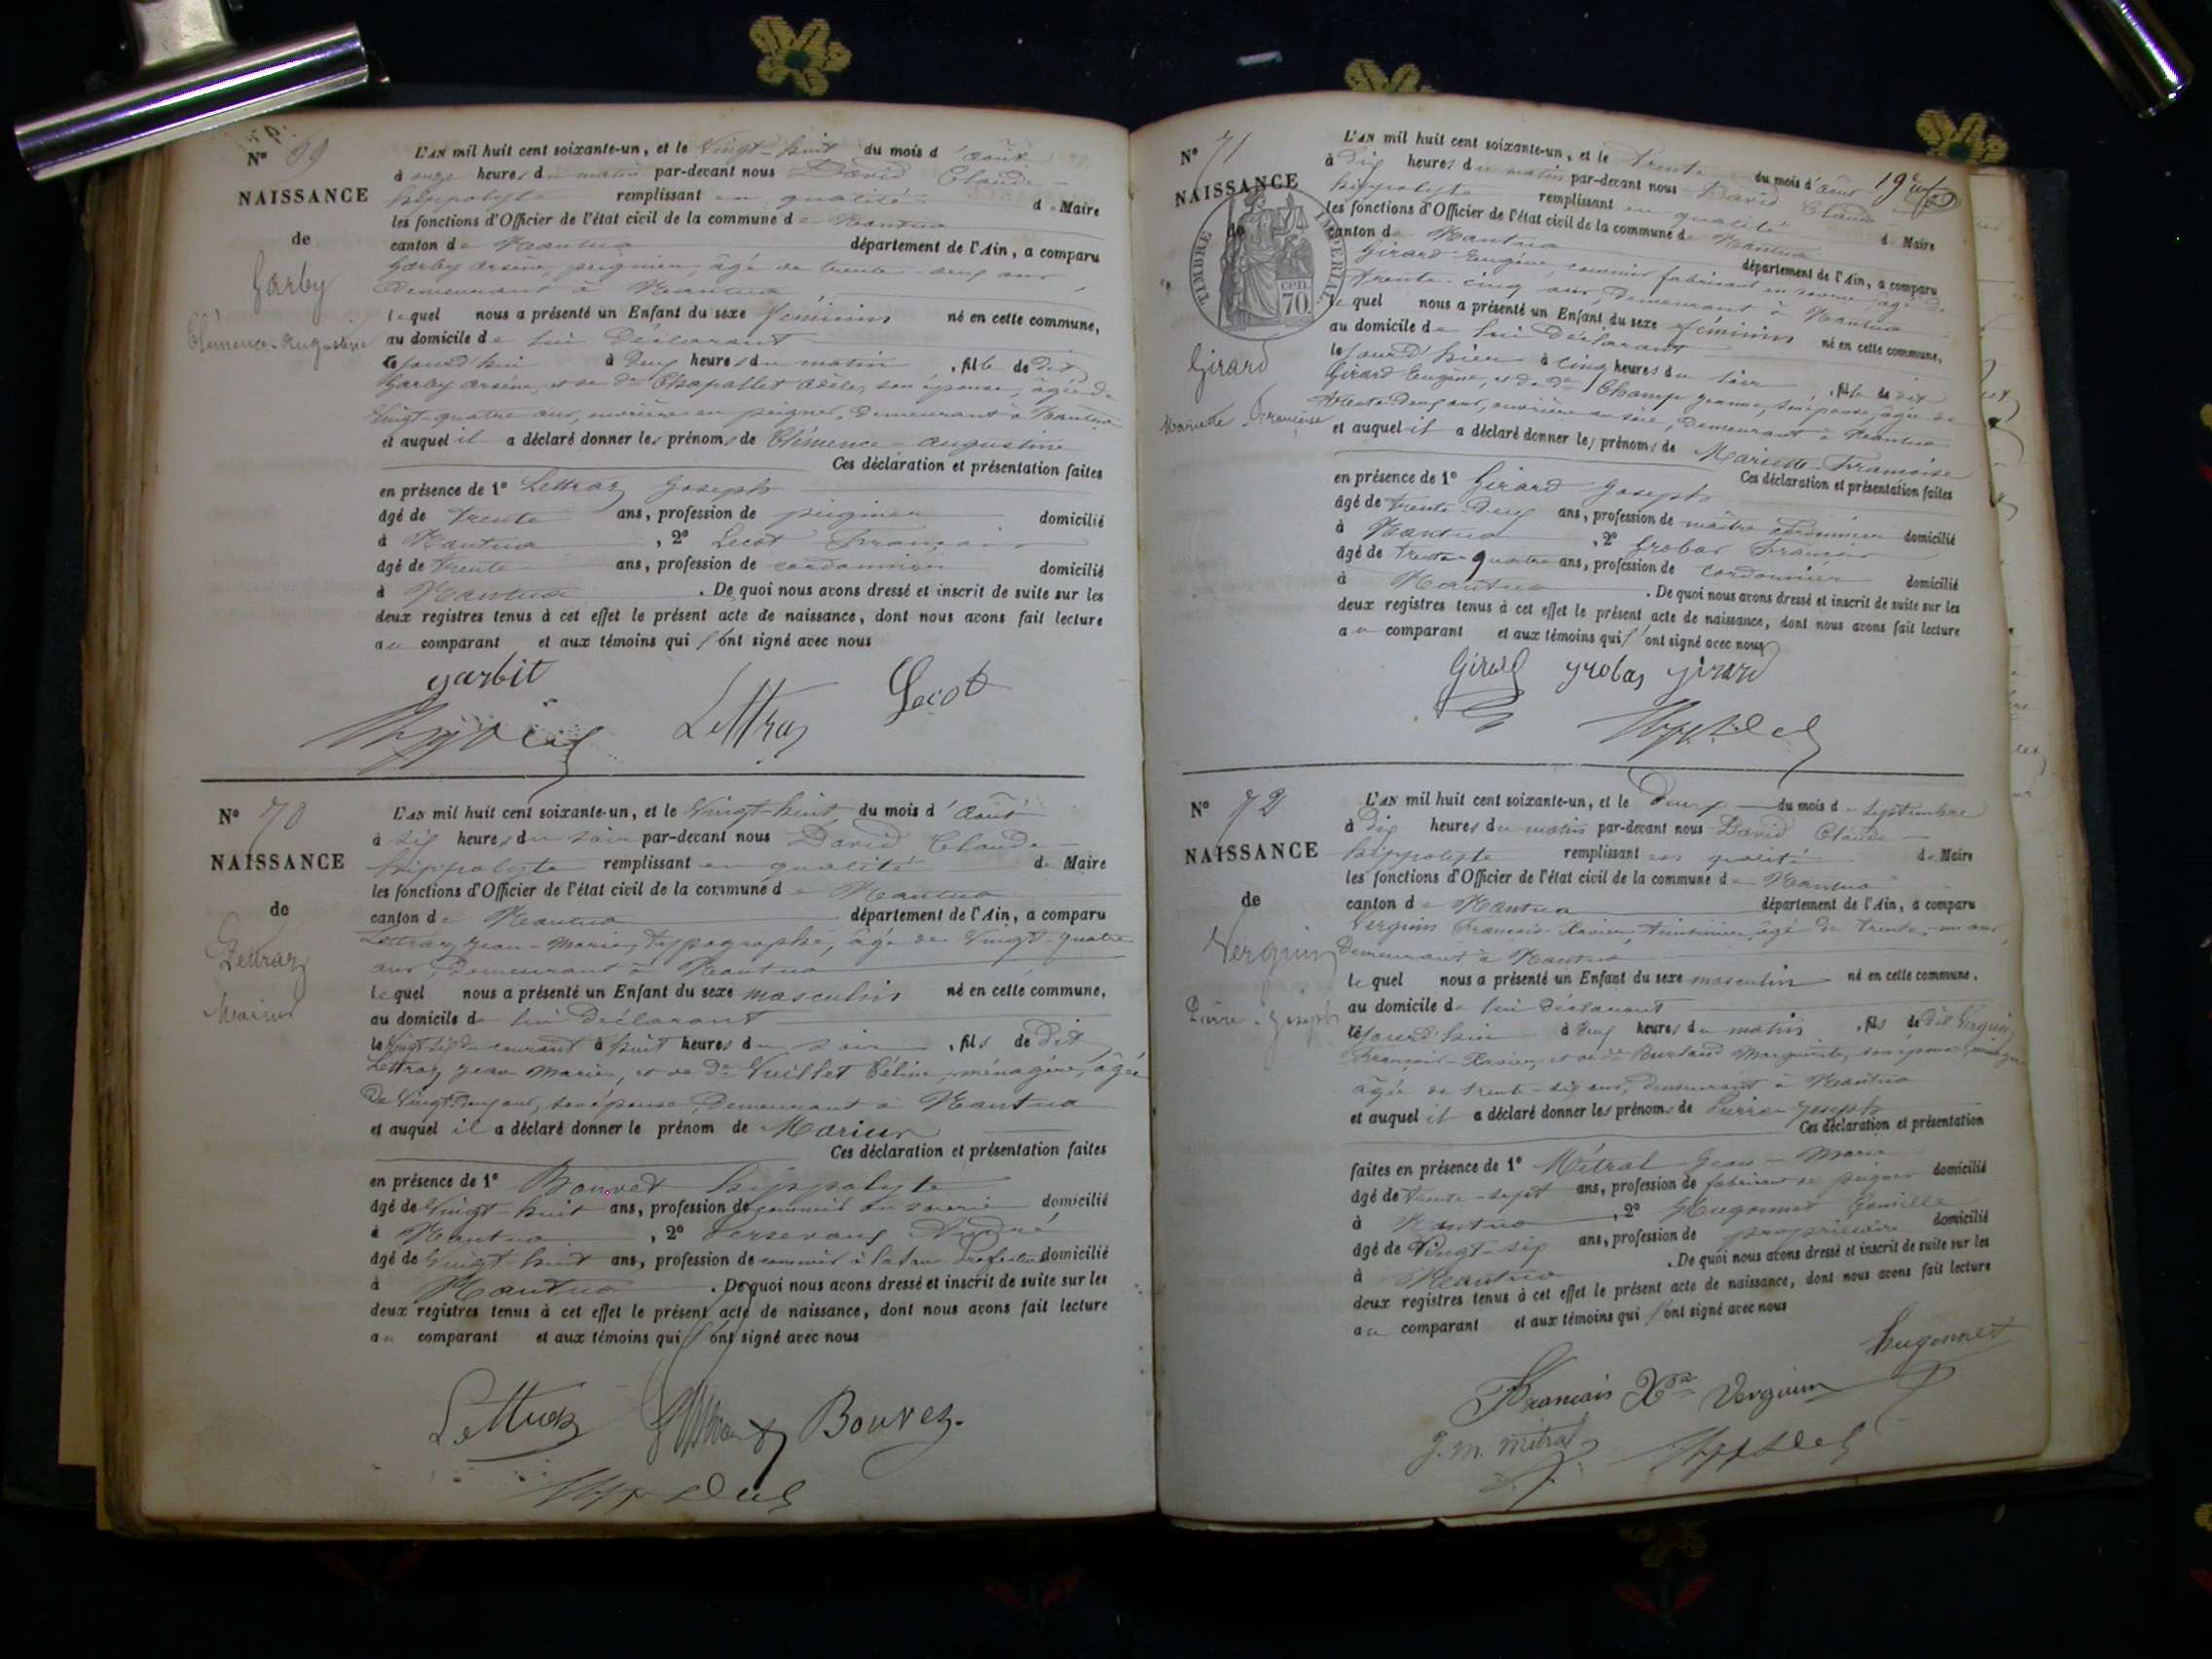 N° 69
NAISSANCE
de
Garby
Clémence-Augustine
L'AN mil huit cent soixante-un, et le Vingt-huit du mois d'août
à onze heures du matin par-devant nous David Claude-
hippolyte remplissant en qualité de Maire
les fonctions d'Officier de l'état civil de la commune de Nantua
canton de Nantua département de l'Ain, a comparu
Garby Arsène, peignier, âgé de trente-deux ans,
demeurant à Nantua
lequel nous a présenté un Enfant du sexe féminin né en cette commune,
au domicile de lui Déclarant
cejourd'hui à Deux heures du matin, fille de dit
Garby Arsène, et de De Chapallet Adèle, son épouse, âgée de
Vingt-quatre ans, ouvrière en peignes, demeurant à Nantua
et auquel il a déclaré donner les prénoms de Clémence-augustine
Ces déclaration et présentation faites
en présence de 1° Lettraz Joseph
âgé de trente ans, profession de peignier domicilié
à Nantua, 2° Lecot François
âgé de trente ans, profession de cordonnier domicilié
à Nantua. De quoi nous avons dressé et inscrit de suite sur les
deux registres tenus à cet effet le présent acte de naissance, dont nous avons fait lecture
au comparant et aux témoins qui l'ont signé avec nous
garbit
Lettraz Lecot
N° 70
NAISSANCE
de
Lettraz
Marius
L'AN mil huit cent soixante-un, et le Vingt-huit du mois d'août
à six heures du soir par-devant nous David Claude-
hippolyte remplissant en qualité de Maire
les fonctions d'Officier de l'état civil de la commune de Nantua
canton de Nantua département de l'Ain, a comparu
Lettraz Jean-Marie, typographe, âgé de Vingt-quatre
ans, demeurant à Nantua
lequel nous a présenté un Enfant du sexe masculin né en cette commune,
au domicile de lui déclarant
le Vingt-six du courant à huit heures du soir, fils de dit
Lettraz Jean-Marie, et de De Vuillet Céline, ménagère, âgée
De Vingt-Deux ans, son épouse, Demeurant à Nantua
et auquel il a déclaré donner le prénom de Marius
Ces déclaration et présentation faites
en présence de 1° Bouvet hippolyte
âgé de Vingt-huit ans, profession de commis en soierie domicilié
à Nantua, 2° André
âgé de Vingt-huit ans, profession de commis à la Sous-Préfecture domicilié
à Nantua. De quoi nous avons dressé et inscrit de suite sur les
deux registres tenus à cet effet le présent acte de naissance, dont nous avons fait lecture
au comparant et aux témoins qui l'ont signé avec nous
Lettraz Bouvet
19e
N° 71
NAISSANCE
de
TIMBRE IMPERIAL
cen. 70.
Girard
Mariette Françoise
L'AN mil huit cent soixante-un, et le trente du mois d'août
à Dix heures du matin par-devant nous David Claude
hippolyte remplissant en qualité de Maire
les fonctions d'Officier de l'état civil de la commune de Nantua
canton de Nantua département de l'Ain, a comparu
Girard Eugène, commis fabricant en soierie, âgé de
trente-cinq ans, demeurant à Nantua
lequel nous a présenté un Enfant du sexe féminin né en cette commune,
au domicile de lui Déclarant
le jour d'hier à cinq heures du soir, fille de dit
Girard Eugène, et de De Champ Jeanne, son épouse, âgée de
trente-deux ans, ouvrière en soie, demeurant à Nantua
et auquel il a déclaré donner les prénoms de Mariette-Françoise
Ces déclaration et présentation faites
en présence de 1° Girard Joseph
âgé de trente-deux ans, profession de maître cordonnier domicilié
à Nantua, 2° Grobas François
âgé de trente-quatre ans, profession de cordonnier domicilié
à Nantua. De quoi nous avons dressé et inscrit de suite sur les
deux registres tenus à cet effet le présent acte de naissance, dont nous avons fait lecture
au comparant et aux témoins qui l'ont signé avec nous
Girard grobas girard
N° 72
NAISSANCE
de
Verguin
Pierre-Joseph
L'AN mil huit cent soixante-un, et le Deux du mois de Septembre
à Dix heures du matin par-devant nous David Claude
hippolyte remplissant en qualité de Maire
les fonctions d'Officier de l'état civil de la commune de Nantua
canton de Nantua département de l'Ain, a comparu
Verguin François-Xavier, teinturier, âgé de trente-un ans,
Demeurant à Nantua
lequel nous a présenté un Enfant du sexe masculin né en cette commune,
au domicile de lui déclarant
cejourd'hui à Deux heures du matin, fils de dit Verguin
François-Xavier, et de De Burland Marguerite, son épouse, ménagère
âgée de trente-six ans, demeurant à Nantua
et auquel il a déclaré donner les prénoms de Pierre-Joseph
Ces déclaration et présentation
faites en présence de 1° Métral Jean-Marie
âgé de trente-sept ans, profession de fabricant de peignes domicilié
à Nantua, 2° Hugonnet Camille
âgé de Vingt-six ans, profession de propriétaire domicilié
à Nantua. De quoi nous avons dressé et inscrit de suite sur les
deux registres tenus à cet effet le présent acte de naissance, dont nous avons fait lecture
au comparant et aux témoins qui l'ont signé avec nous
hugonnet
Francois Xer Verguin
J. m. métral